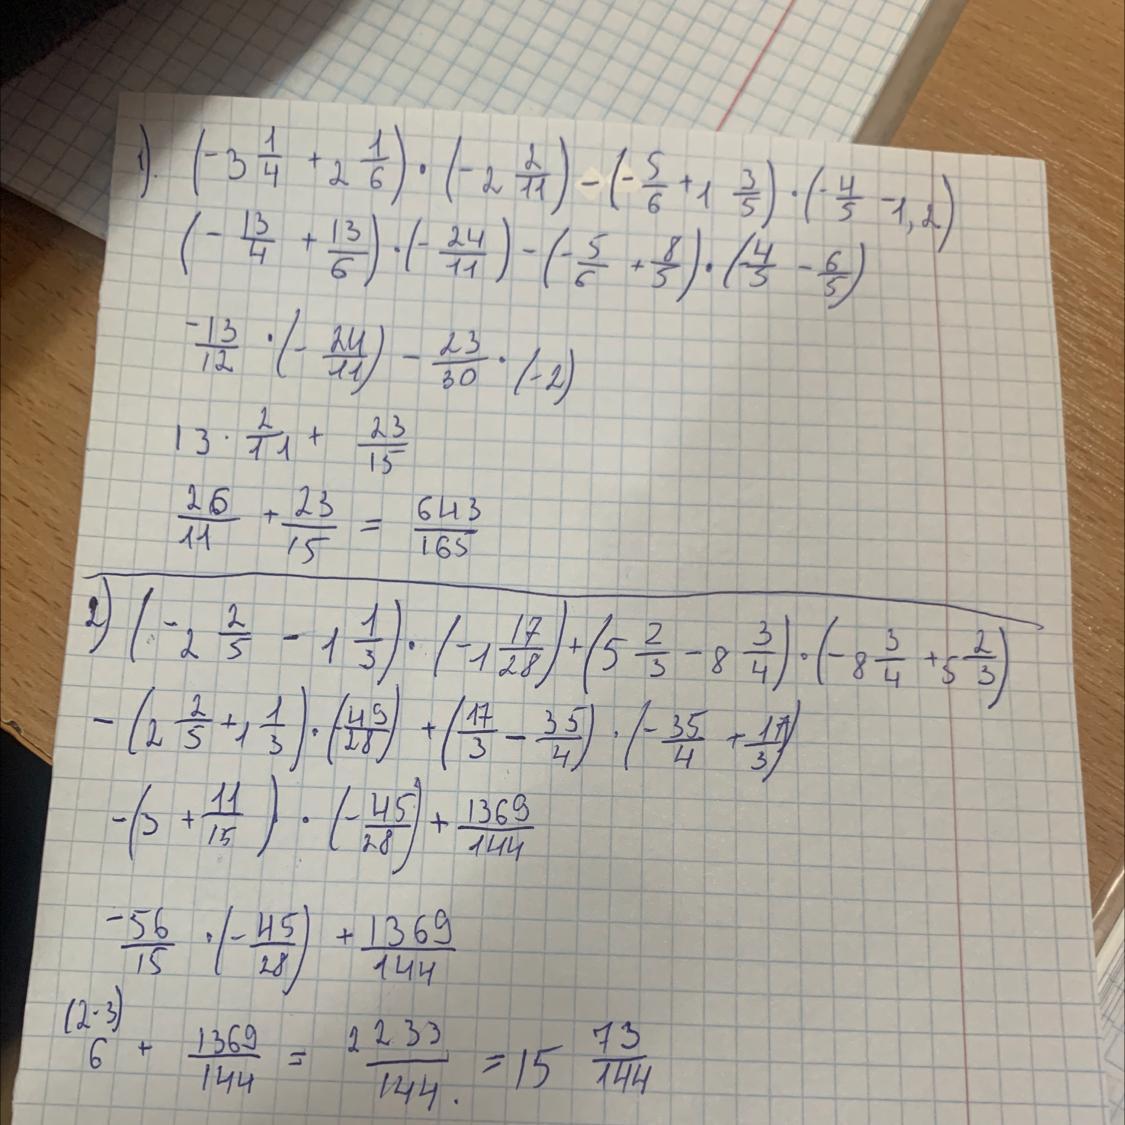 1). (-3 1/4 + 2 1/6) · (-2 2/11) - (-5/6 + 1 3/5) · (-4/5 - 1,2)
(-13/4 + 13/6) · (-24/11) - (-5/6 + 8/5) · (-4/5 - 6/5)
-13/12 · (-24/11) - 23/30 · (-2)
13 · 2/11 + 23/15
26/11 + 23/15 = 643/165
2) (-2 2/5 - 1 1/3) · (-1 17/28) + (5 2/3 - 8 3/4) · (-8 3/4 + 5 2/3)
- (2 2/5 + 1 1/3) · (-49/28) + (17/3 - 35/4) · (-35/4 + 17/3)
-(3 + 11/15) · (-45/28) + 1369/144
-56/15 · (-45/28) + 1369/144
(2·3)
6 + 1369/144 = 2233/144. = 15 73/144